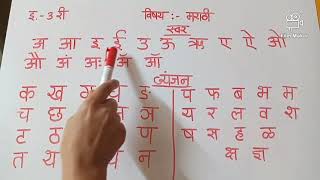 इ.- ३ री विषय :- मराठी
स्वर
अ आ इ ई उ ऊ ऋ ए ऐ ओ
औ अं अः ॲ ऑ
व्यंजन
क ख ग ङ प फ ब भ म
च छ य र ल व श
ट ठ ण ष स ह ळ
त थ न क्ष ज्ञ